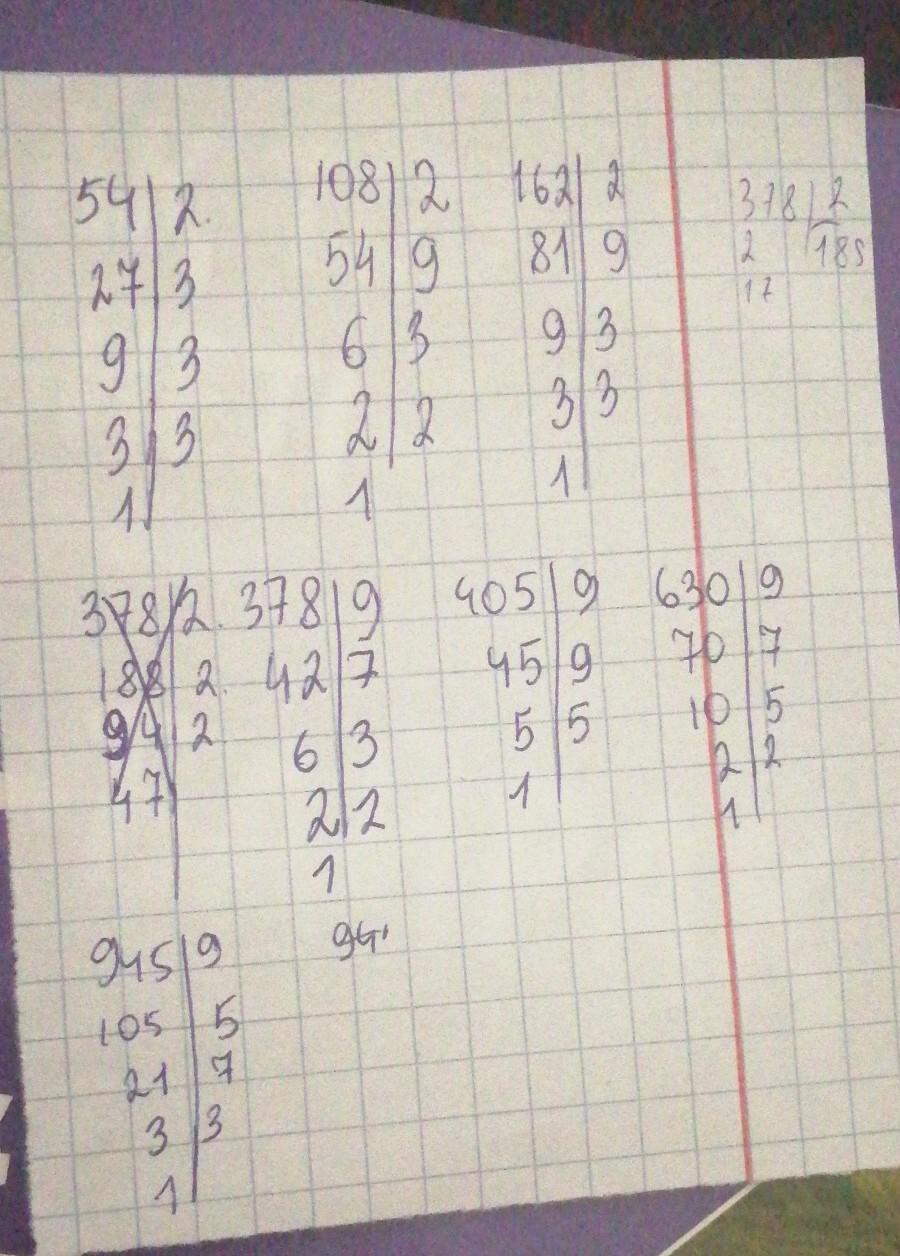 54|2.
27|3
9|3
3|3
1|
108|2
54|9
6|3
2|2
1
162|2
81|9
9|3
3|3
1|
378|2
2 |185
17
378|2.
188|2.
94|2
47|
378|9
42|7
6|3
2|2
1
405|9
45|9
5|5
1|
630|9
70|7
10|5
2|2
1|
945|9
105|5
21|7
3|3
1|
94